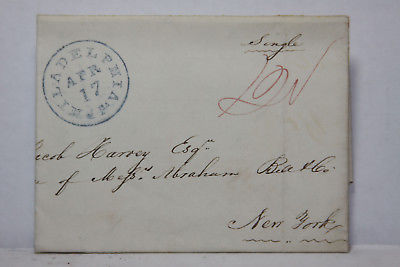 Single
PHILADELPHIA Pa
APR
17
Jacob Harvey Esqr
of Messrs Abraham Bell & Co
New York